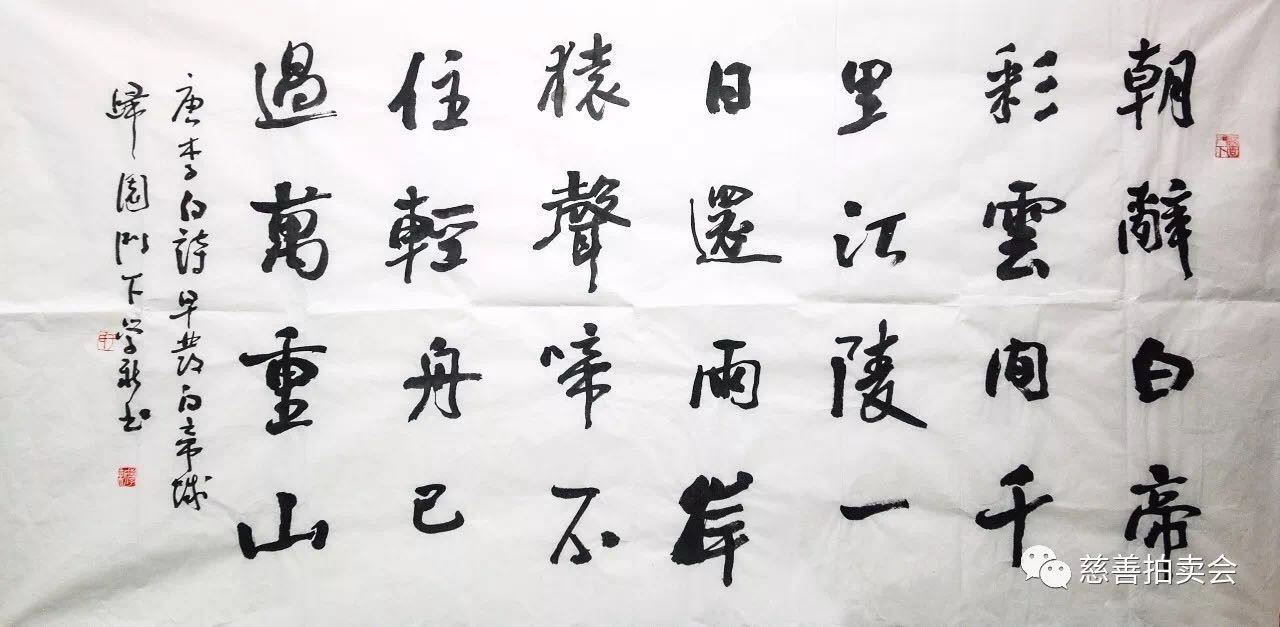 朝辭白帝
彩雲間千
里江陵一
日還兩岸
猿聲啼不
住輕舟已
過萬重山
唐李白詩早發白帝城
歸園門下學新书
慈善拍卖会